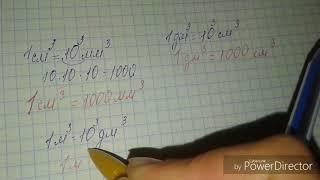 1см³=10³мм³
10·10·10=1000
1см³=1000мм³
1м³=10³дм³
1м
1дм³=10³см³
1дм³=1000см³
Made with
PowerDirector